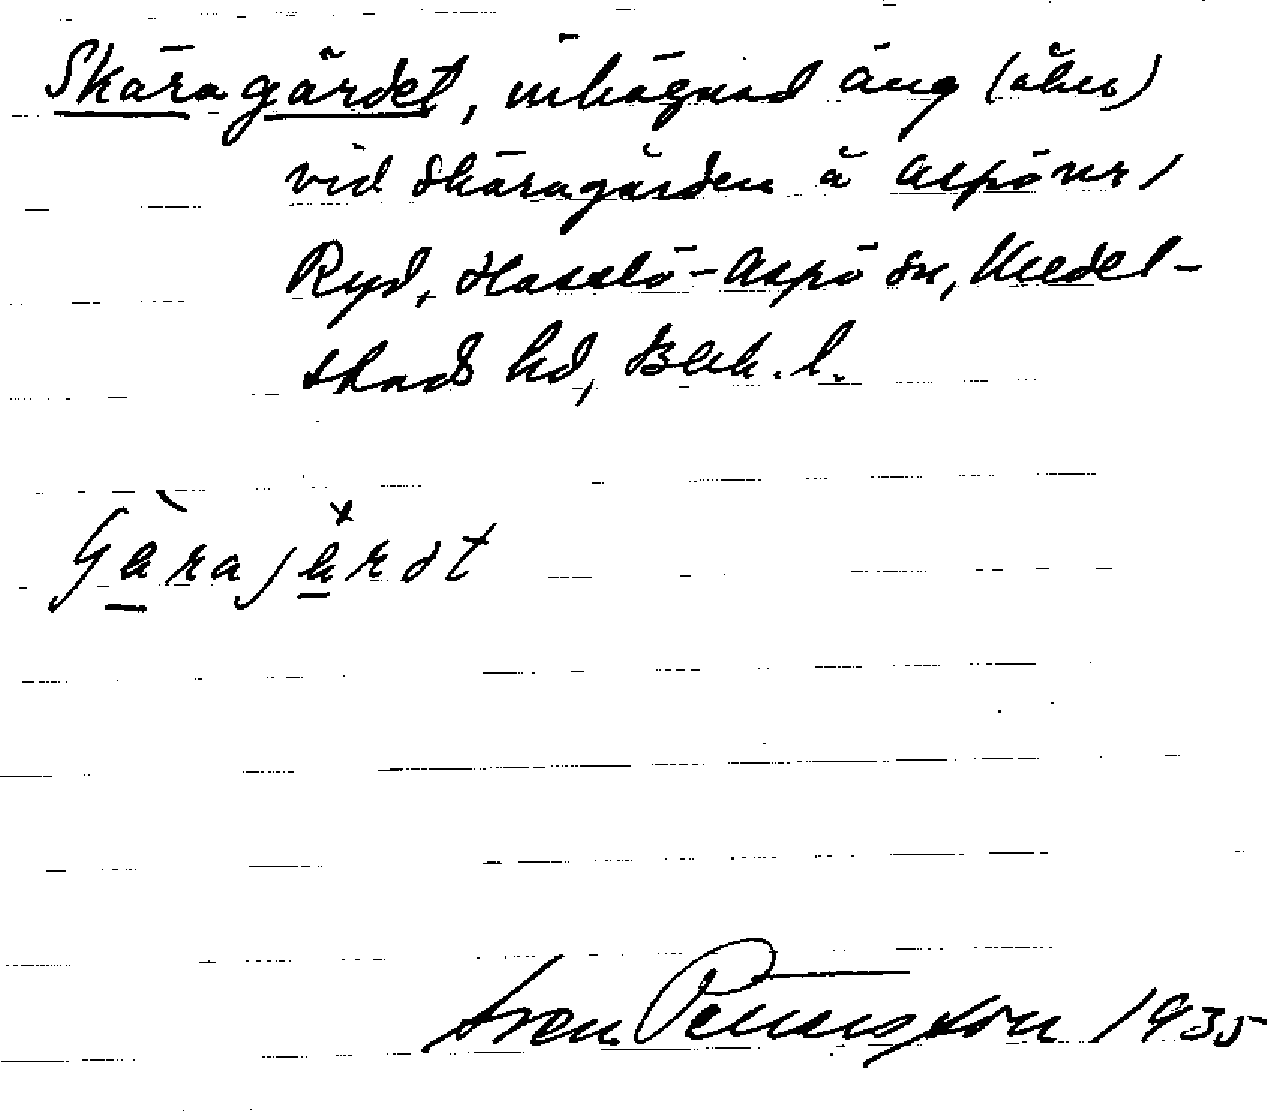 Skäragärdet, inhägnad äng (åker)
vid Skäragården å Aspön,
Ryd, Hasslö-Aspö sn, Medel-
stads hd, Blek. l.
järdt
Sven Petersson 1935